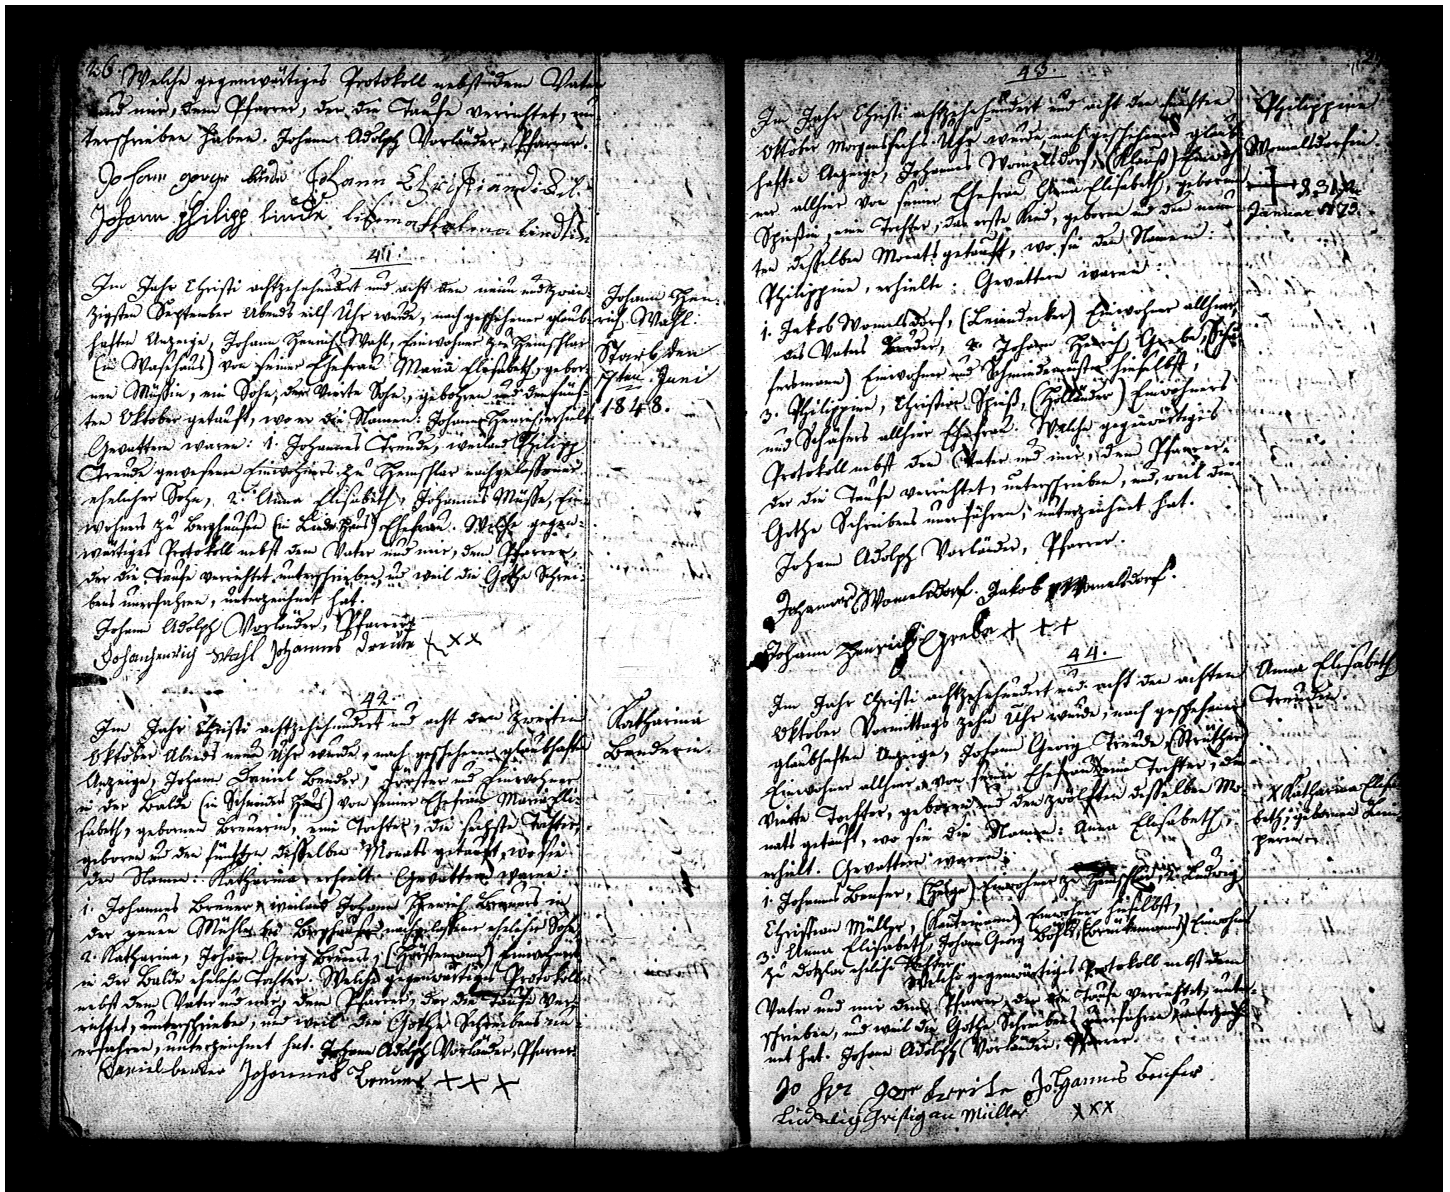 26
Welche gegenwärtiges Protokoll nebst dem Vater
und mir, dem Pfarrer, der die Taufe verrichtet, un-
terschrieben haben. Johann Adolph Vorländer, Pfarrer.
Johann georg linde Johann Christian
Johann philipp linde
41.
Im Jahr Christi achtzehnhundert und acht den neun und zwan-
zigsten September Abends eilf Uhr wurde, nach geschehener glaub-
haften Anzeige, Johann Henrich Wahl, Einwohner zu Hemschlar
(in Wasehaus) von seiner Ehefrau Maria Elisabeth, gebor-
nen Müssin, ein Sohn, der vierte Sohn, gebohren und den fünf-
ten Oktober getauft, wo er die Namen: Johann Henrich erhielt.
Gevattern waren: 1. Johannes Treude, weiland Philipp
Treude gewesenen Einwohners zu Hemschlar nachgelassener
ehelicher Sohn, 2. Anna Elisabeth, Johannes Müsse, Ein-
wohners zu Berghausen (in Linde Haus) Ehefrau. Welche gegen-
wärtiges Protokoll nebst dem Vater und mir, dem Pfarrer,
der die Taufe verrichtet, unterschrieben, und weil die Gothe Schrei-
bens unerfahren, unterzeichnet hat.
Johann Adolph Vorländer, Pfarrer
Johanhenrich Wahl Johannes Dreute xxx
Johann Hen-
rich Wahl.
Starb den
17ten Juni
1848.
42.
Im Jahr Christi achtzehnhundert und acht den zweiten
Oktober Abends neun Uhr wurde, nach geschehener glaubhaften
Anzeige, Johann Daniel Bender, Förster und Einwohner
in der Balde (in Schneiders Haus) von seiner Ehefrau Maria Eli-
sabeth, gebornen Breuerin, eine Tochter, die sechste Tochter,
geboren und den fünften desselben Monats getauft, wo sie
den Namen: Katharina erhielt. Gevattern waren:
1. Johannes Breuer, weiland Johann Henrich Breuers in
der neuen Mühle bei Berghausen nachgelassener ehelicher Sohn,
2. Katharina, Johann Georg Breuer, Einwohners
in der Balde eheliche Tochter. Welche gegenwärtiges Protokoll
nebst dem Vater und mir, dem Pfarrer, der die Taufe ver-
richtet, unterschrieben, und weil die Gothe Schreibens un-
erfahren, unterzeichnet hat. Johann Adolph Vorländer, Pfarrer
Daniel benter Johannes Breuer xxx
Katharina
Benderin.
43.
Im Jahr Christi achtzehnhundert und acht den fünften
Oktober Morgens sechs Uhr wurde, nach geschehener glaub-
haften Anzeige, Johannes Womelsdorf, (Klaus) Einwoh-
ner allhier von seiner Ehefrau Anna Elisabeth, gebornen
Spiesin, eine Tochter, das erste Kind, geboren und den neun-
ten desselben Monats getauft, wo sie den Namen:
Philippine, erhielte: Gevattern waren:
1. Jakob Womelsdorf, (Leiendecker) Einwohner allhier,
des Vaters Bruder, 2. Johann Henrich Grebe,
Einwohner und Schmiedemeister hieselbst,
3. Philippine, Christian Spies, (Holländer) Einwohners
und Schäfers allhier Ehefrau. Welche gegenwärtiges
Protokoll nebst dem Vater und mir, dem Pfarrer,
der die Taufe verrichtet, unterschrieben, und, weil die
Gothe Schreibens unerfahren, unterzeichnet hat.
Johann Adolph Vorländer, Pfarrer.
Johannes Womelsdorf. Jakob Womelsdorf.
Johann Henrich grebe xxx
Philippine
Womelsdorfin.
Januar 1873.
44.
Im Jahr Christi achtzehnhundert und acht den achten
Oktober Vormittags zehn Uhr wurde, nach geschehener
glaubhaften Anzeige, Johann Georg Treude, (Strüther)
Einwohner allhier, von seiner Ehefrau x eine Tochter, die
vierte Tochter, geboren und den zwölften desselben Mo-
nats getauft, wo sie die Namen: Anna Elisabeth,
erhielt. Gevattern waren:
1. Johannes Benfer, Einwohner zu Hemschlar, 2. Ludwig
Christian Müller, Einwohner hieselbst,
3. Anna Elisabeth, Johann Georg Einwohners
zu Dotzlar eheliche Tochter.
Welche gegenwärtiges Protokoll nebst dem
Vater und mir dem Pfarrer, der die Taufe verrichtet, unter-
schrieben, und weil die Gothe Schreibens unerfahren, unterzeich-
net hat. Johann Adolph Vorländer, Pfarrer.
Johannes Benfer
Ludwig Christian Müller xxx
Anna Elisabeth
Treudin.
x Katharina Elisa-
beth, geborenen